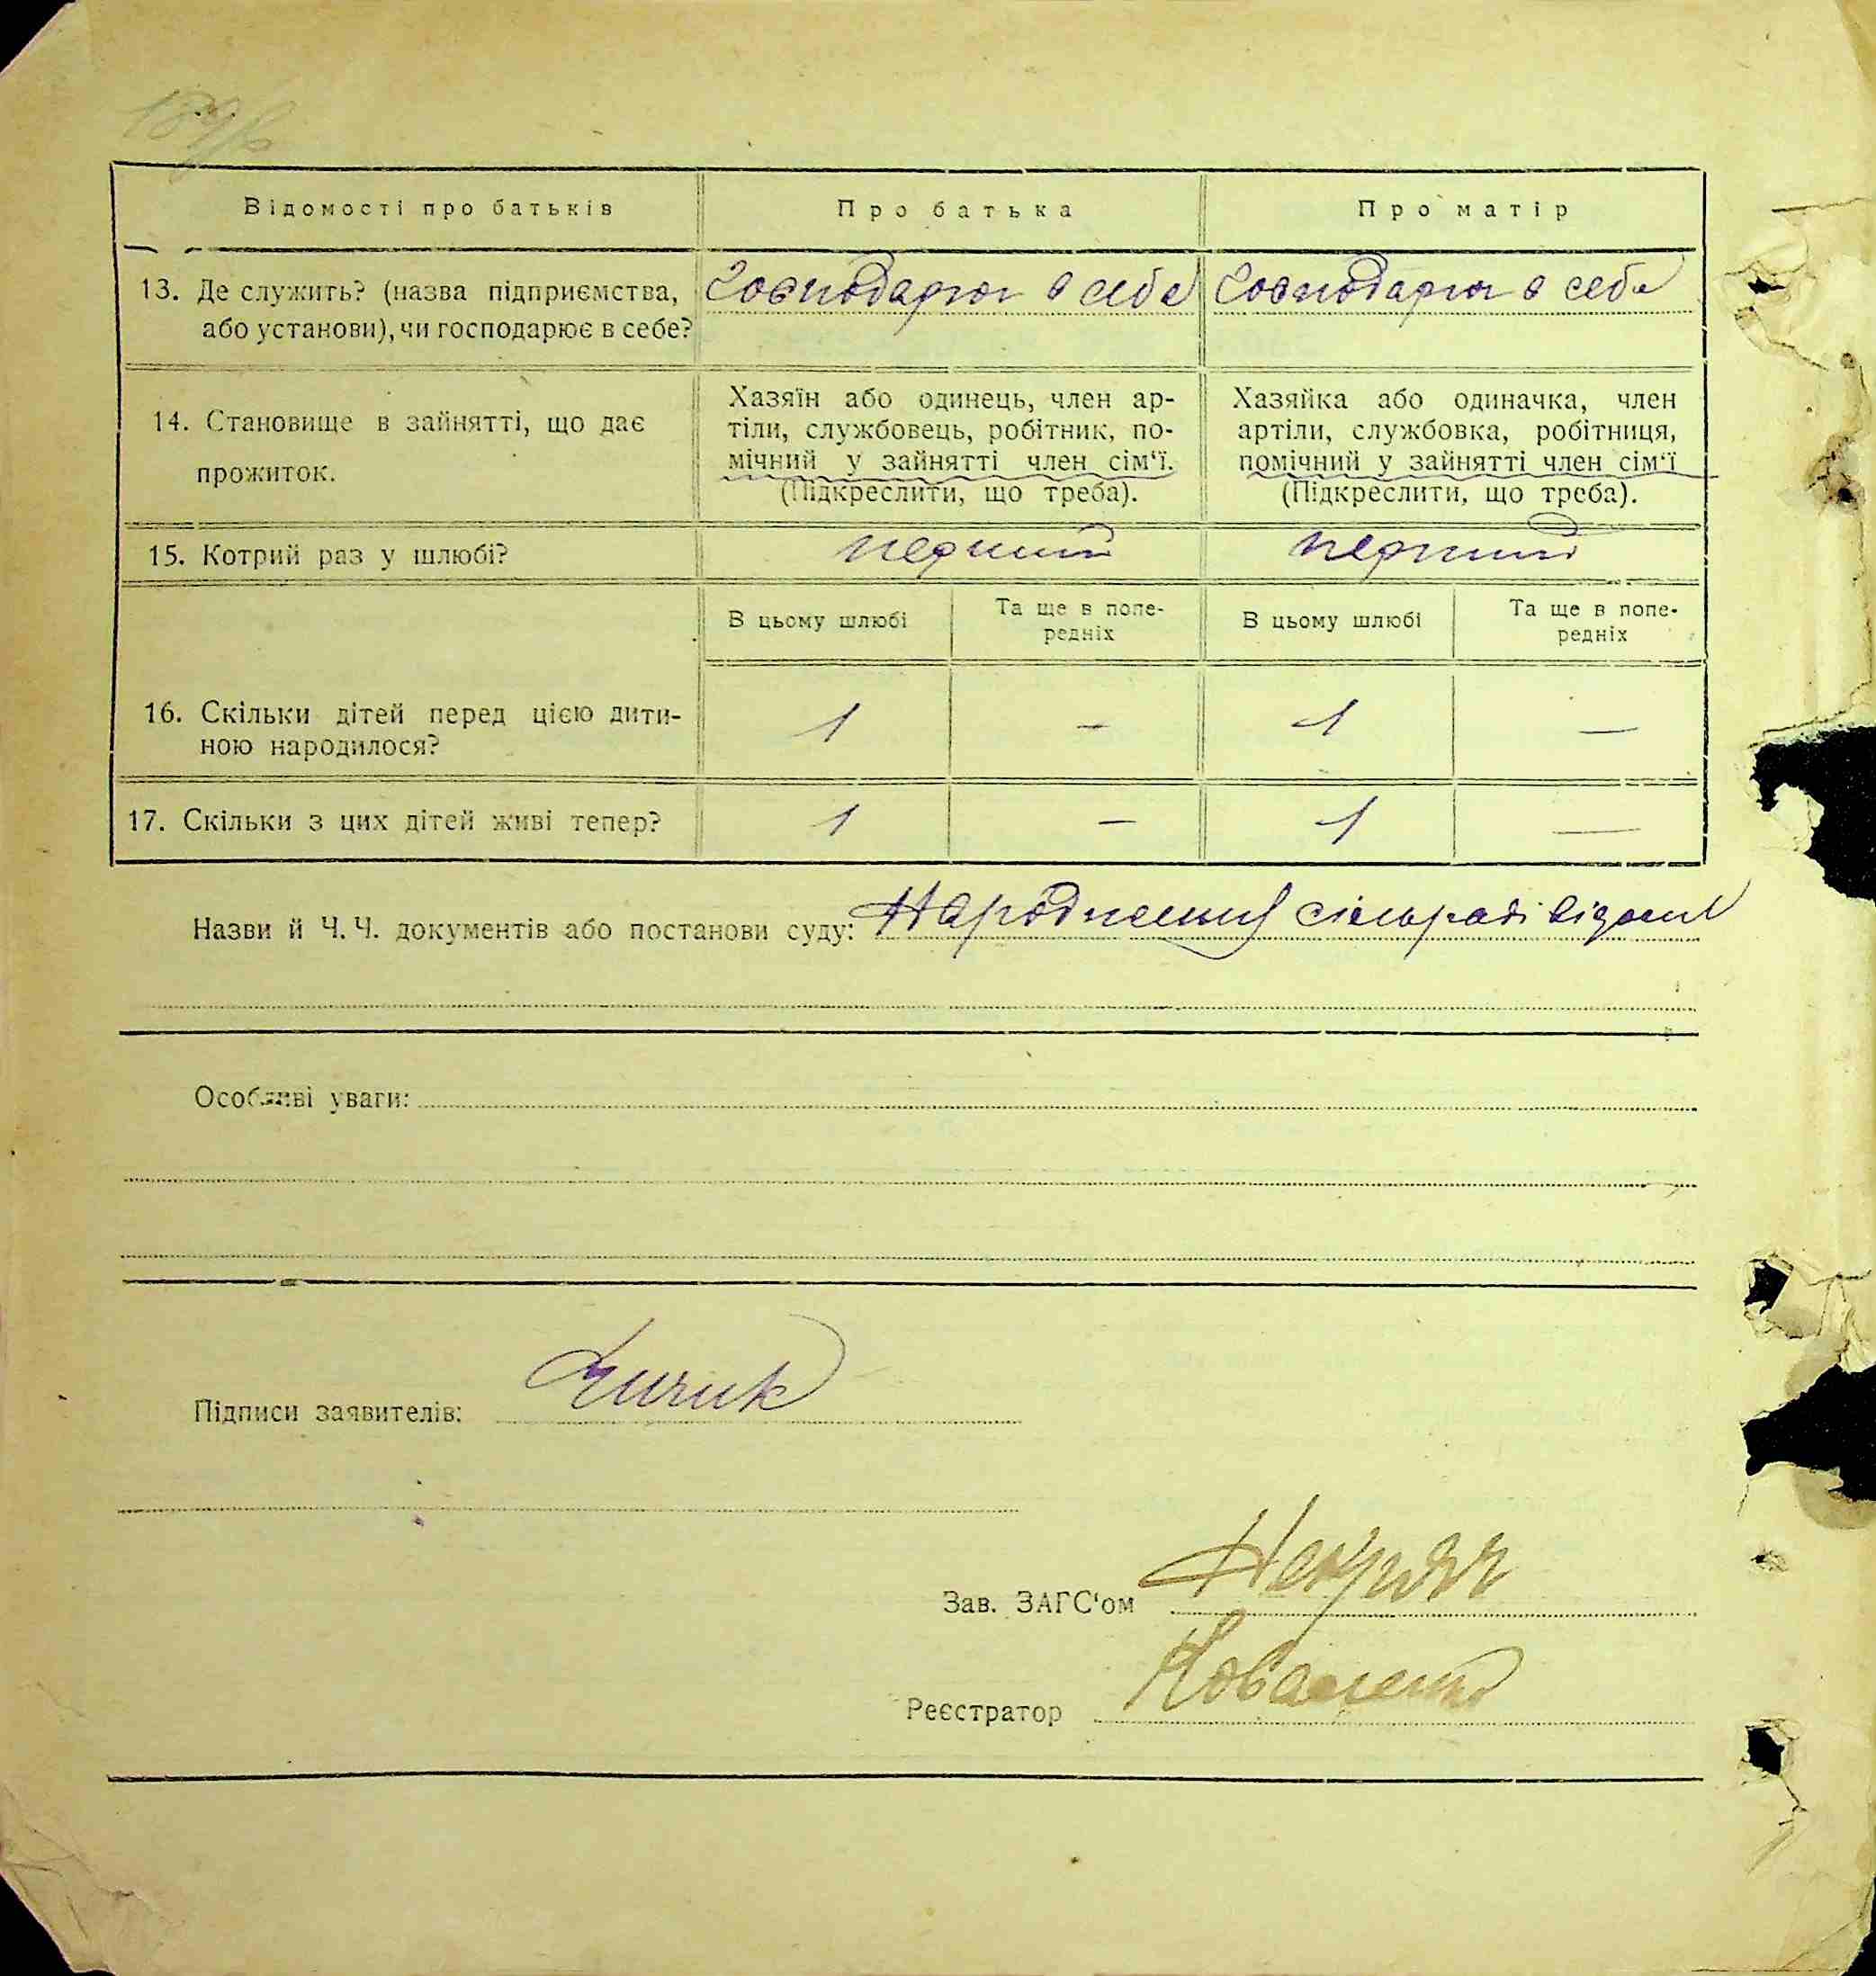 Відомості про батьків
Про батька
Про матір
13. Де служить? (назва підприємства,
або установи), чи господарює в себе?
Господарює в себе
Господарює в себе
14. Становище в зайнятті, що дає
прожиток.
Хазяїн або одинець, член ар-
тіли, службовець, робітник, по-
мічний у зайнятті член сім'ї.
(Підкреслити, що треба).
Хазяйка або одиначка, член
артіли, службовка, робітниця,
помічний у зайнятті член сім'ї
(Підкреслити, що треба).
15. Котрий раз у шлюбі?
перший
перший
В цьому шлюбі
Та ще в попе-
редніх
В цьому шлюбі
Та ще в попе-
редніх
16. Скільки дітей перед цією дити-
ною народилося?
1
—
1
—
17. Скільки з цих дітей живі тепер?
1
—
1
—
Назви й Ч. Ч. документів або постанови суду: Народження сільраді відоме
Особливі уваги:
Підписи заявителів:
Зав. ЗАГС'ом
Реєстратор Коваленко